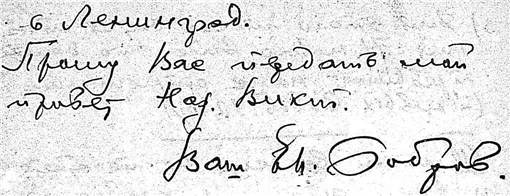 в Ленинград.
Прошу Вас передать мой
привет Над. Викт.
Ваш Ев. Бобров.